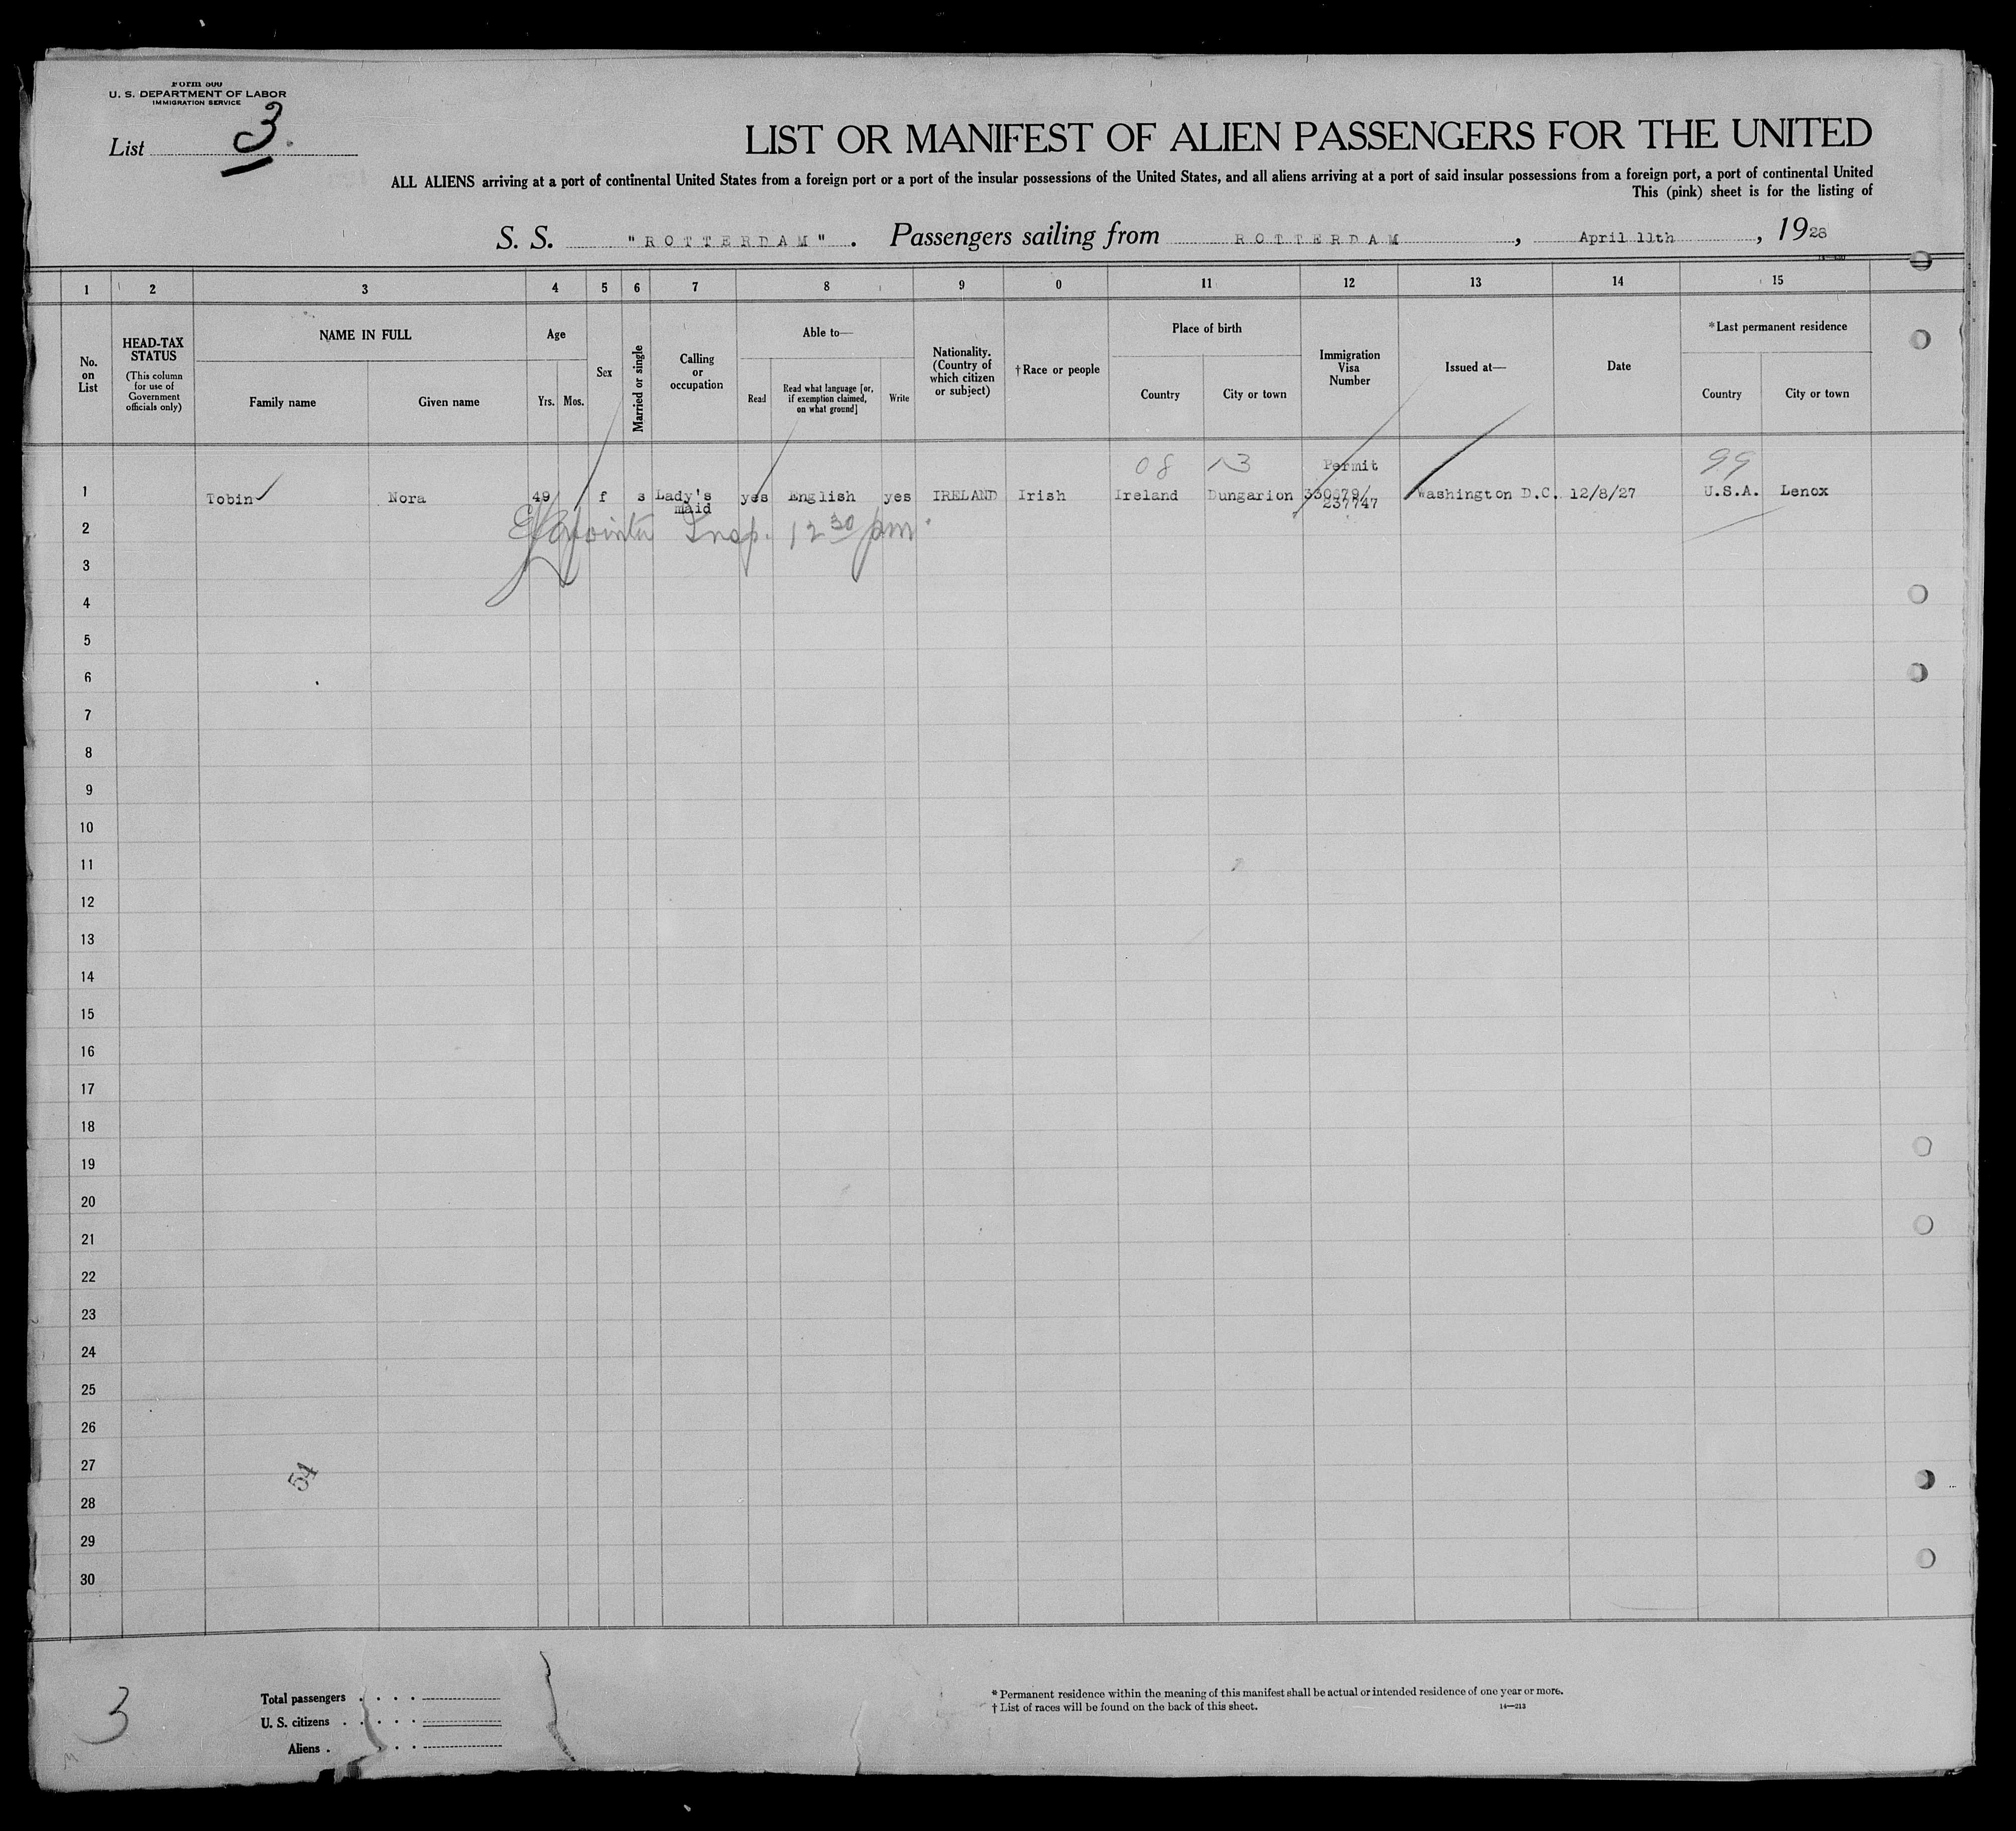 Form 500
U. S. DEPARTMENT OF LABOR
IMMIGRATION SERVICE
List 3.
LIST OR MANIFEST OF ALIEN PASSENGERS FOR THE UNITED
ALL ALIENS arriving at a port of continental United States from a foreign port or a port of the insular possessions of the United States, and all aliens arriving at a port of said insular possessions from a foreign port, a port of continental United
This (pink) sheet is for the listing of
S. S. "ROTTERDAM". Passengers sailing from ROTTERDAM, April 11th, 1928
1 2 3 4 5 6 7 8 9 0 11 12 13 14 15
No. on List
HEAD-TAX STATUS
(This column for use of Government officials only)
NAME IN FULL
Family name
Given name
Age
Yrs. Mos.
Sex
Married or single
Calling or occupation
Able to—
Read
Read what language [or, if exemption claimed, on what ground]
Write
Nationality. (Country of which citizen or subject)
†Race or people
Place of birth
Country
City or town
Immigration Visa Number
Issued at—
Date
*Last permanent residence
Country
City or town
08 13 Permit 99
1 Tobin Nora 49 f s Lady's maid yes English yes IRELAND Irish Ireland Dungarion 330679/237747 Washington D.C. 12/8/27 U.S.A. Lenox
2 Insp. 12 30 pm.
3
4
5
6
7
8
9
10
11
12
13
14
15
16
17
18
19
20
21
22
23
24
25
26
27
54
28
29
30
3
Total passengers
U. S. citizens
Aliens
* Permanent residence within the meaning of this manifest shall be actual or intended residence of one year or more.
† List of races will be found on the back of this sheet.
14—213